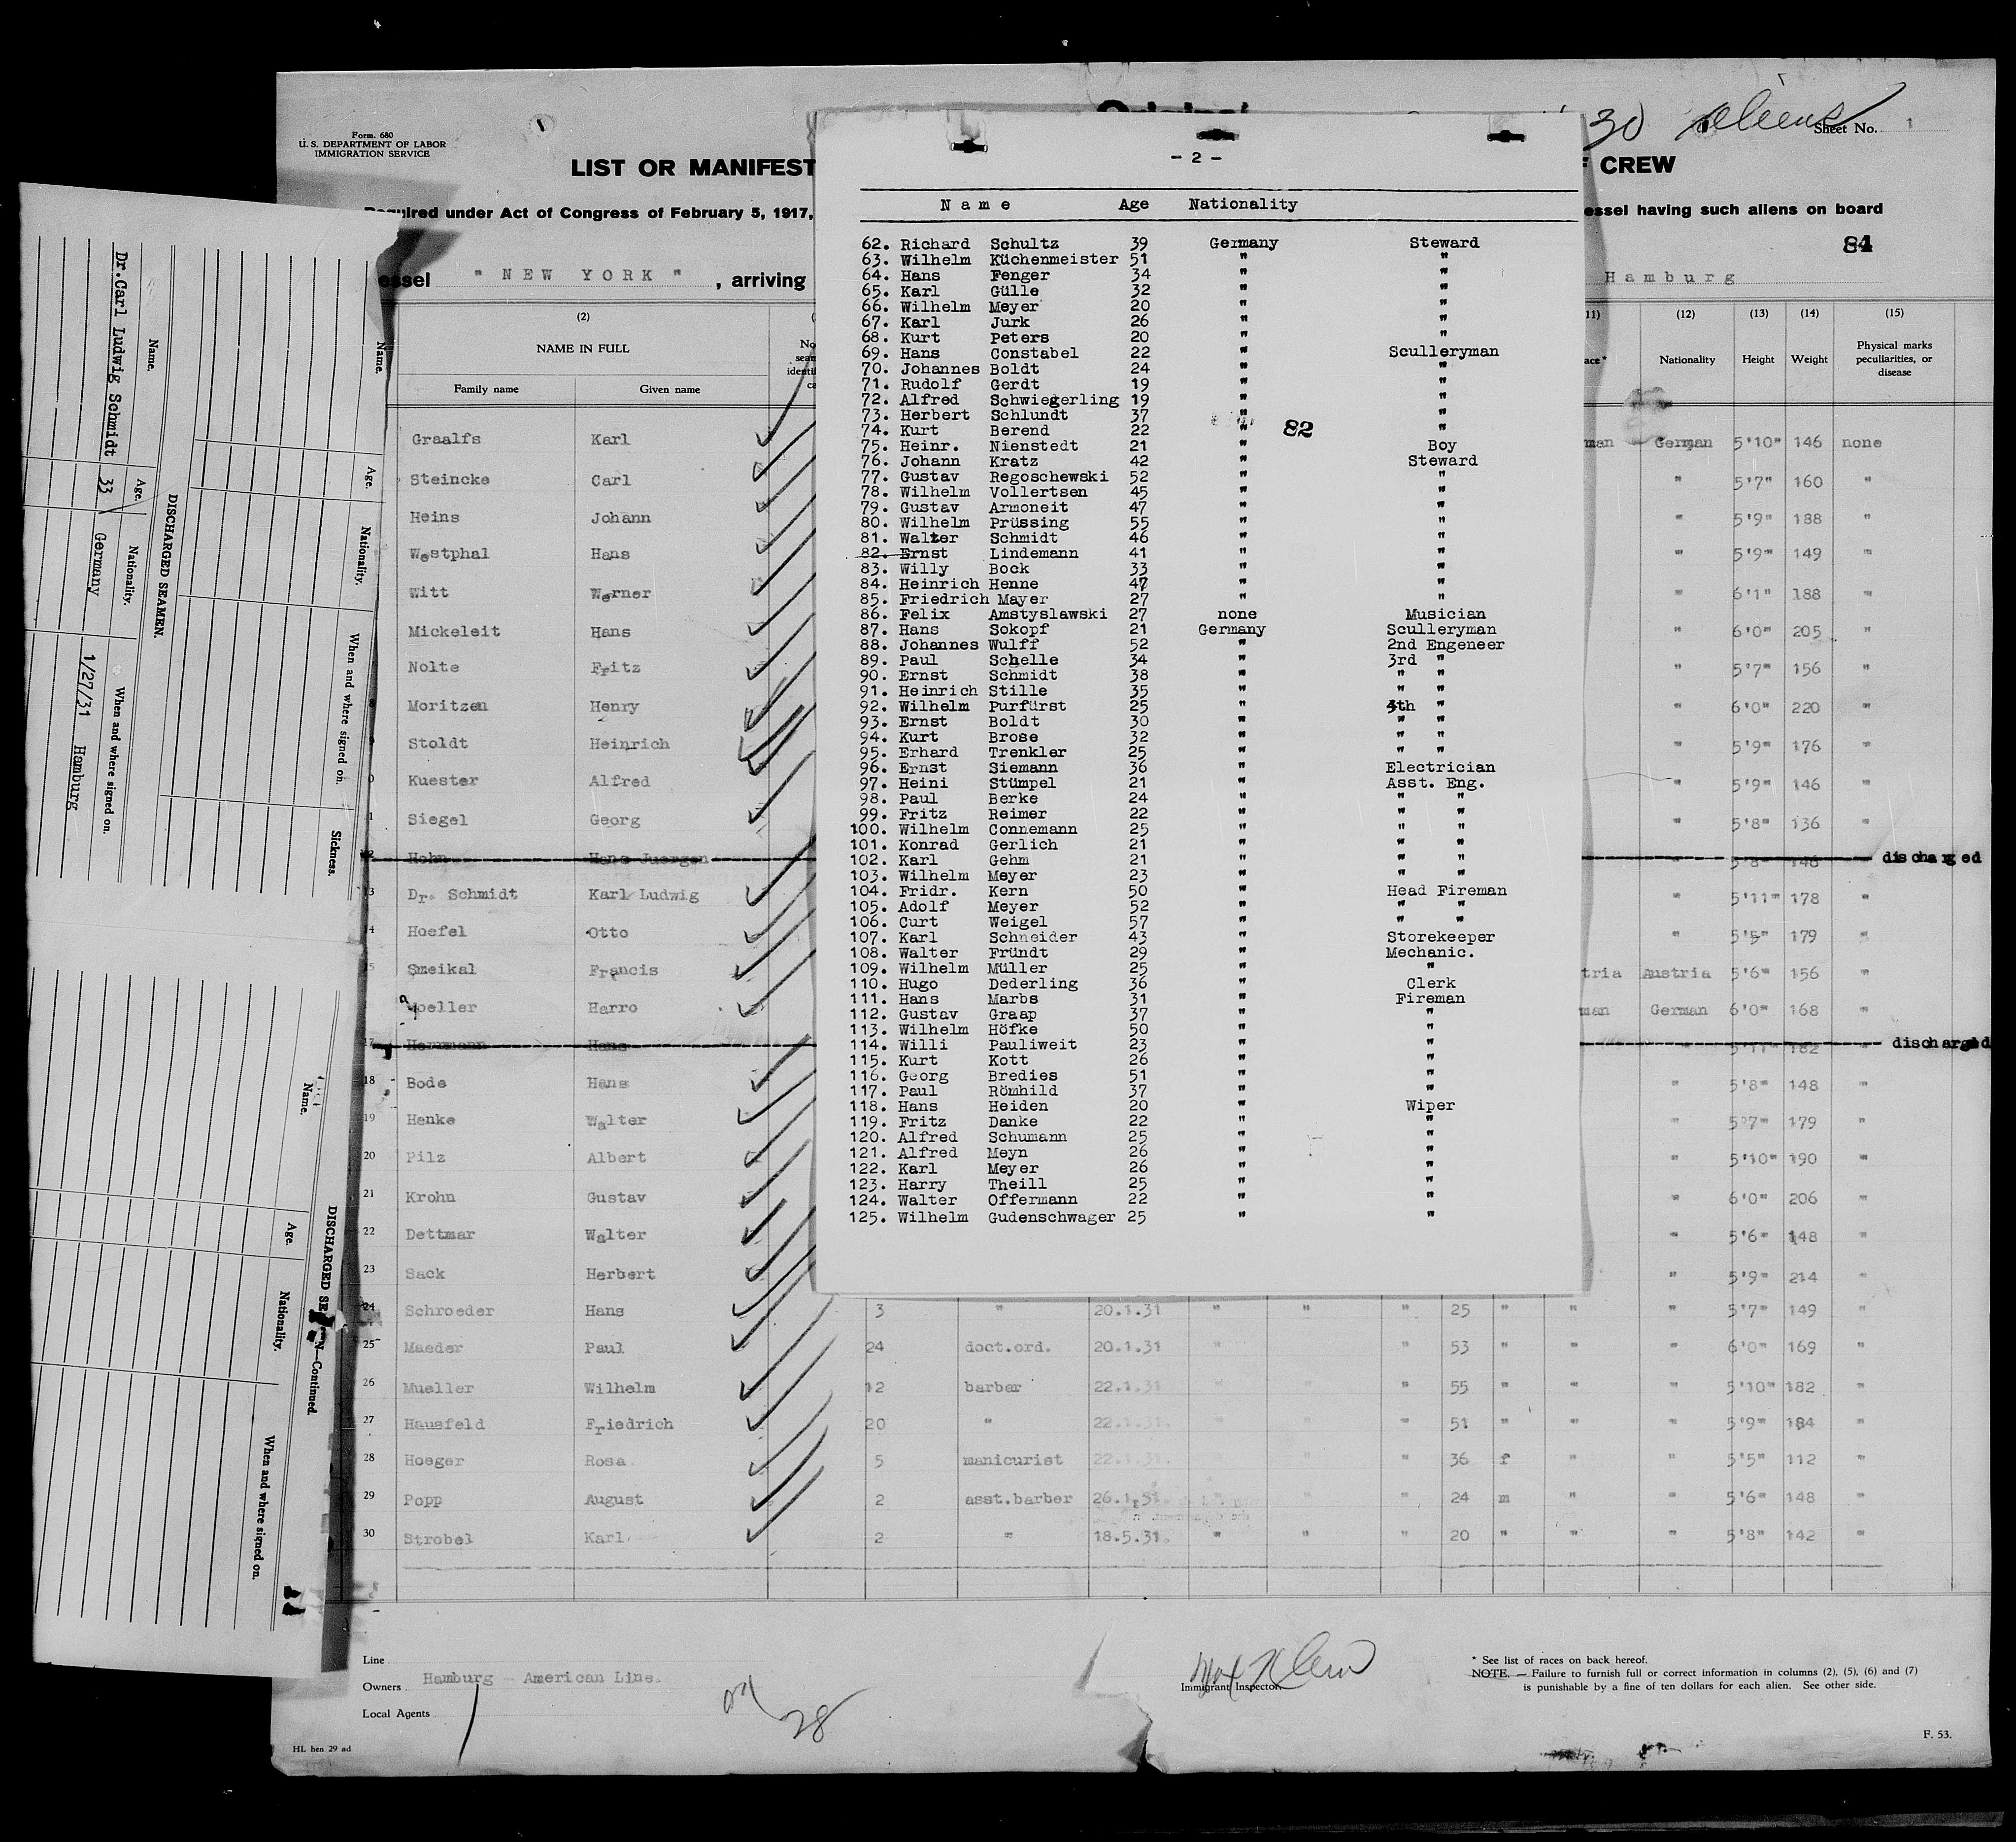 Form. 680
U. S. DEPARTMENT OF LABOR
IMMIGRATION SERVICE
30 aliens
Sheet No. 1
LIST OR MANIFEST
CREW
Required under Act of Congress of February 5, 1917,
essel having such aliens on board
84
essel " NEW YORK " , arriving
Hamburg
(2)
NAME IN FULL
Family name Given name
(12) (13) (14) (15)
Nationality Height Weight Physical marks peculiarities, or disease
Graalfs Karl man German 5'10" 146 none
Steincke Carl " 5'7" 160 "
Heins Johann " 5'9" 188 "
Westphal Hans " 5'9" 149 "
Witt Werner " 6'1" 188 "
Mickeleit Hans " 6'0" 205 "
Nolte Fritz " 5'7" 156 "
Moritzen Henry " 6'0" 220 "
Stoldt Heinrich " 5'9" 176 "
Kuester Alfred " 5'9" 146 "
Siegel Georg " 5'8" 136 "
Hohn Hans Juergen " 5'8" 146 discharged
13 Dr. Schmidt Karl Ludwig " 5'11" 178 "
14 Hoefel Otto " 5'5" 179 "
15 Smeikal Francis tria Austria 5'6" 156 "
Moeller Harro man German 6'0" 168 "
17 Herrmann Hans 5'11" 182 " discharged
18 Bode Hans " 5'8" 148 "
19 Henke Walter " 5'7" 179 "
20 Pilz Albert " 5'10" 190 "
21 Krohn Gustav " 6'0" 206 "
22 Dettmar Walter " 5'6" 148 "
23 Sack Herbert " 5'9" 214 "
24 Schroeder Hans 3 " 20.1.31 " " " 25 " " " 5'7" 149 "
25 Maeder Paul 24 doct.ord. 20.1.31 " " 53 " " " 6'0" 169 "
26 Mueller Wilhelm 12 barber 22.1.31 " " " 55 " " " 5'10" 182 "
27 Hausfeld Friedrich 20 " 22.1.31. " " " 51 " " " 5'9" 184 "
28 Hoeger Rosa 5 manicurist 22.1.31. " " " 36 f " " 5'5" 112 "
29 Popp August 2 asst.barber 26.1.31. " " 24 m " " 5'6" 148 "
30 Strobel Karl 2 " 18.5.31. " " " 20 " " " 5'8" 142 "
Line
Owners Hamburg - American Line.
Local Agents
28
Max Klein
Immigrant Inspector.
* See list of races on back hereof.
NOTE. — Failure to furnish full or correct information in columns (2), (5), (6) and (7)
is punishable by a fine of ten dollars for each alien. See other side.
HL hen 29 ad
F. 53.
- 2 -
Name Age Nationality
62. Richard Schultz 39 Germany Steward
63. Wilhelm Küchenmeister 51 " "
64. Hans Fenger 34 " "
65. Karl Gülle 32 " "
66. Wilhelm Meyer 20 " "
67. Karl Jurk 26 " "
68. Kurt Peters 20 " "
69. Hans Constabel 22 " Sculleryman
70. Johannes Boldt 24 " "
71. Rudolf Gerdt 19 " "
72. Alfred Schwiegerling 19 " "
73. Herbert Schlundt 37 " "
74. Kurt Berend 22 " 82 "
75. Heinr. Nienstedt 21 " Boy
76. Johann Kratz 42 " Steward
77. Gustav Regoschewski 52 " "
78. Wilhelm Vollertsen 45 " "
79. Gustav Armoneit 47 " "
80. Wilhelm Prüssing 55 " "
81. Walter Schmidt 46 " "
82. Ernst Lindemann 41 " "
83. Willy Bock 33 " "
84. Heinrich Henne 47 " "
85. Friedrich Mayer 27 " "
86. Felix Amstyslawski 27 none Musician
87. Hans Sokopf 21 Germany Sculleryman
88. Johannes Wulff 52 " 2nd Engeneer
89. Paul Schelle 34 " 3rd "
90. Ernst Schmidt 38 " " "
91. Heinrich Stille 35 " " "
92. Wilhelm Purfürst 25 " 4th "
93. Ernst Boldt 30 " " "
94. Kurt Brose 32 " " "
95. Erhard Trenkler 25 " " "
96. Ernst Siemann 36 " Electrician
97. Heini Stümpel 21 " Asst. Eng.
98. Paul Berke 24 " " "
99. Fritz Reimer 22 " " "
100. Wilhelm Connemann 25 " " "
101. Konrad Gerlich 21 " " "
102. Karl Gehm 21 " " "
103. Wilhelm Meyer 23 " " "
104. Fridr. Kern 50 " Head Fireman
105. Adolf Meyer 52 " " "
106. Curt Weigel 57 " " "
107. Karl Schneider 43 " Storekeeper
108. Walter Fründt 29 " Mechanic.
109. Wilhelm Müller 25 " "
110. Hugo Dederling 36 " Clerk
111. Hans Marbs 31 " Fireman
112. Gustav Graap 37 " "
113. Wilhelm Höfke 50 " "
114. Willi Pauliweit 23 " "
115. Kurt Kott 26 " "
116. Georg Bredies 51 " "
117. Paul Römhild 37 " "
118. Hans Heiden 20 " Wiper
119. Fritz Danke 22 " "
120. Alfred Schumann 25 " "
121. Alfred Meyn 26 " "
122. Karl Meyer 26 " "
123. Harry Theill 25 " "
124. Walter Offermann 22 " "
125. Wilhelm Gudenschwager 25 " "
DISCHARGED SEAMEN.
Name. Age. Nationality. When and where signed on.
Dr.Carl Ludwig Schmidt 33 Germany 1/27/31 Hamburg
Name. Age. Nationality. When and where signed on. Sickness.
DISCHARGED SEAMEN—Continued.
Name. Age. Nationality. When and where signed on.